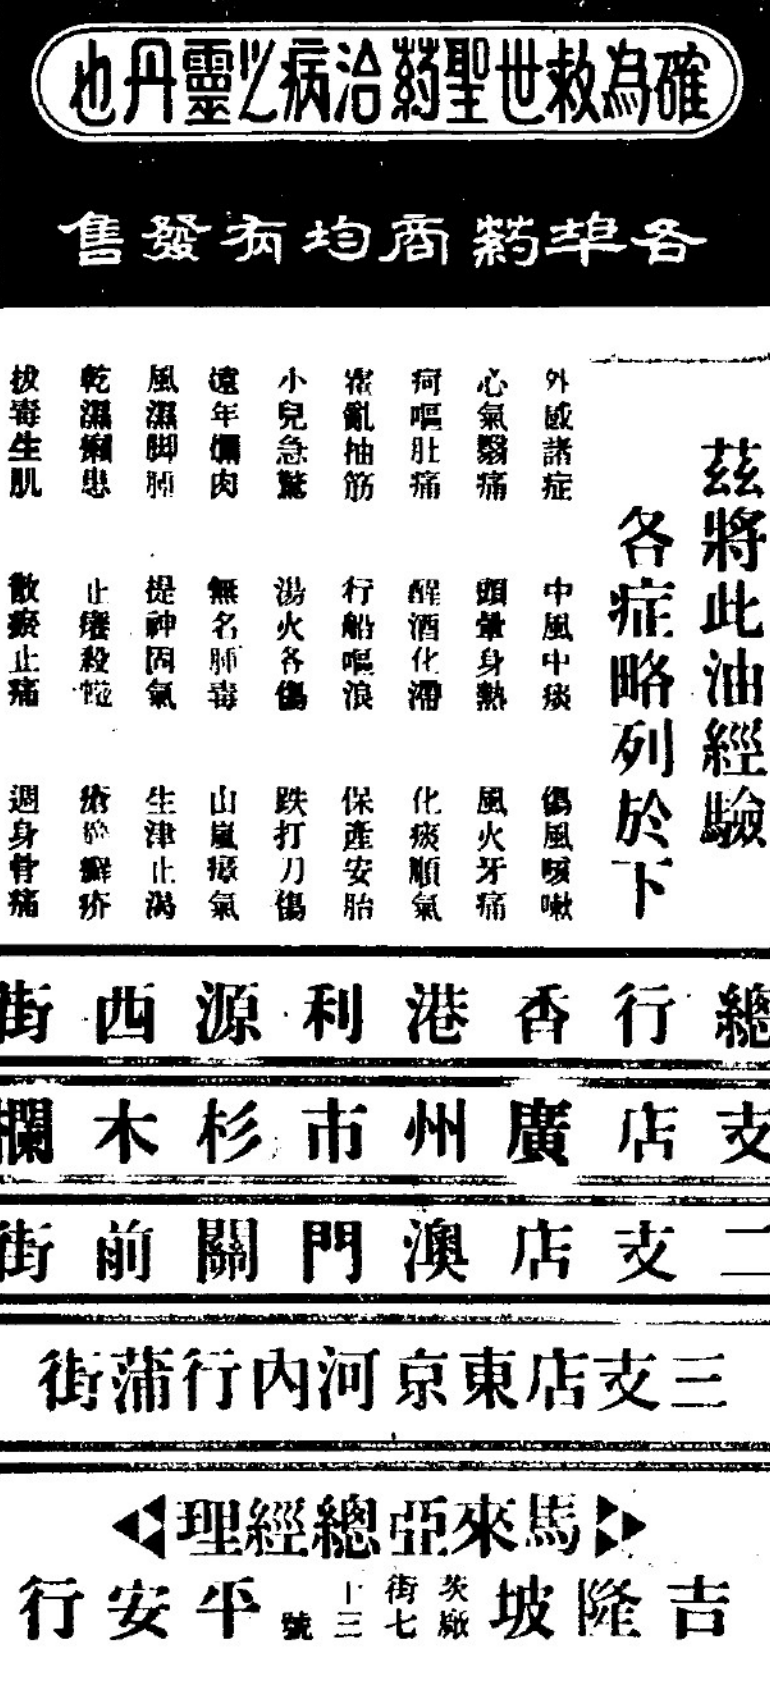 確為救世聖葯治病必靈丹也
各埠葯商均有發售
茲將此油經驗
各症略列於下
外感諸症 中風中痰 傷風咳嗽
心氣翳痛 頭暈身熱 風火牙痛
疴嘔肚痛 醒酒化滯 化痰順氣
霍亂抽筋 行船嘔浪 保產安胎
小兒急驚 湯火各傷 跌打刀傷
遠年爛肉 無名肿毒 山嵐瘴氣
風濕脚肿 提神固氣 生津止渴
乾濕癩患 止癢殺 癬疥
拔毒生肌 散瘀止痛 週身骨痛
總行香港利源西街
支店廣州市杉木欄
二支店澳門關前街
三支店東京河內行蒲街
馬來亞總經理
吉隆坡茨廠街七十三號平安行